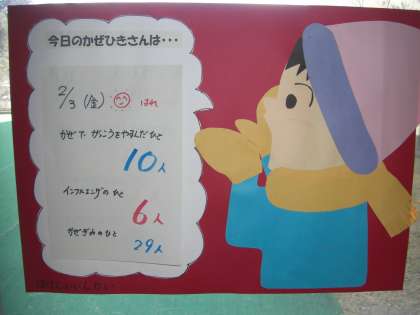 今日のかぜひきさんは・・・
2/3 (金) はれ
かぜで がっこうをやすんだひと
10人
インフルエンザの ひと
6人
かぜぎみのひと
29人
ほけんいいんかい